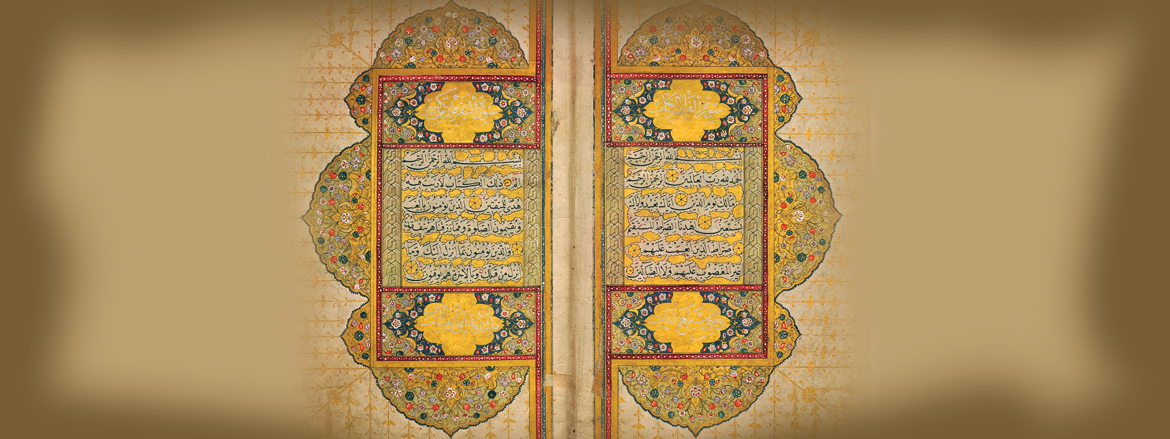 بسم الله الرحمن الرحيم
الحمد لله رب العالمين الرحمن الرحيم
مالك يوم الدين اياك نعبد واياك
نستعين اهدنا الصراط المستقيم
صراط الذين انعمت عليهم
غير المغضوب عليهم ولا الضالين
بسم الله الرحمن الرحيم
الم ذلك الكتاب لا ريب فيه
هدى للمتقين الذين يؤمنون بالغيب
ويقيمون الصلوة ومما رزقناهم ينفقون
والذين يؤمنون بما انزل اليك وما
انزل من قبلك وبالاخرة هم يوقنون